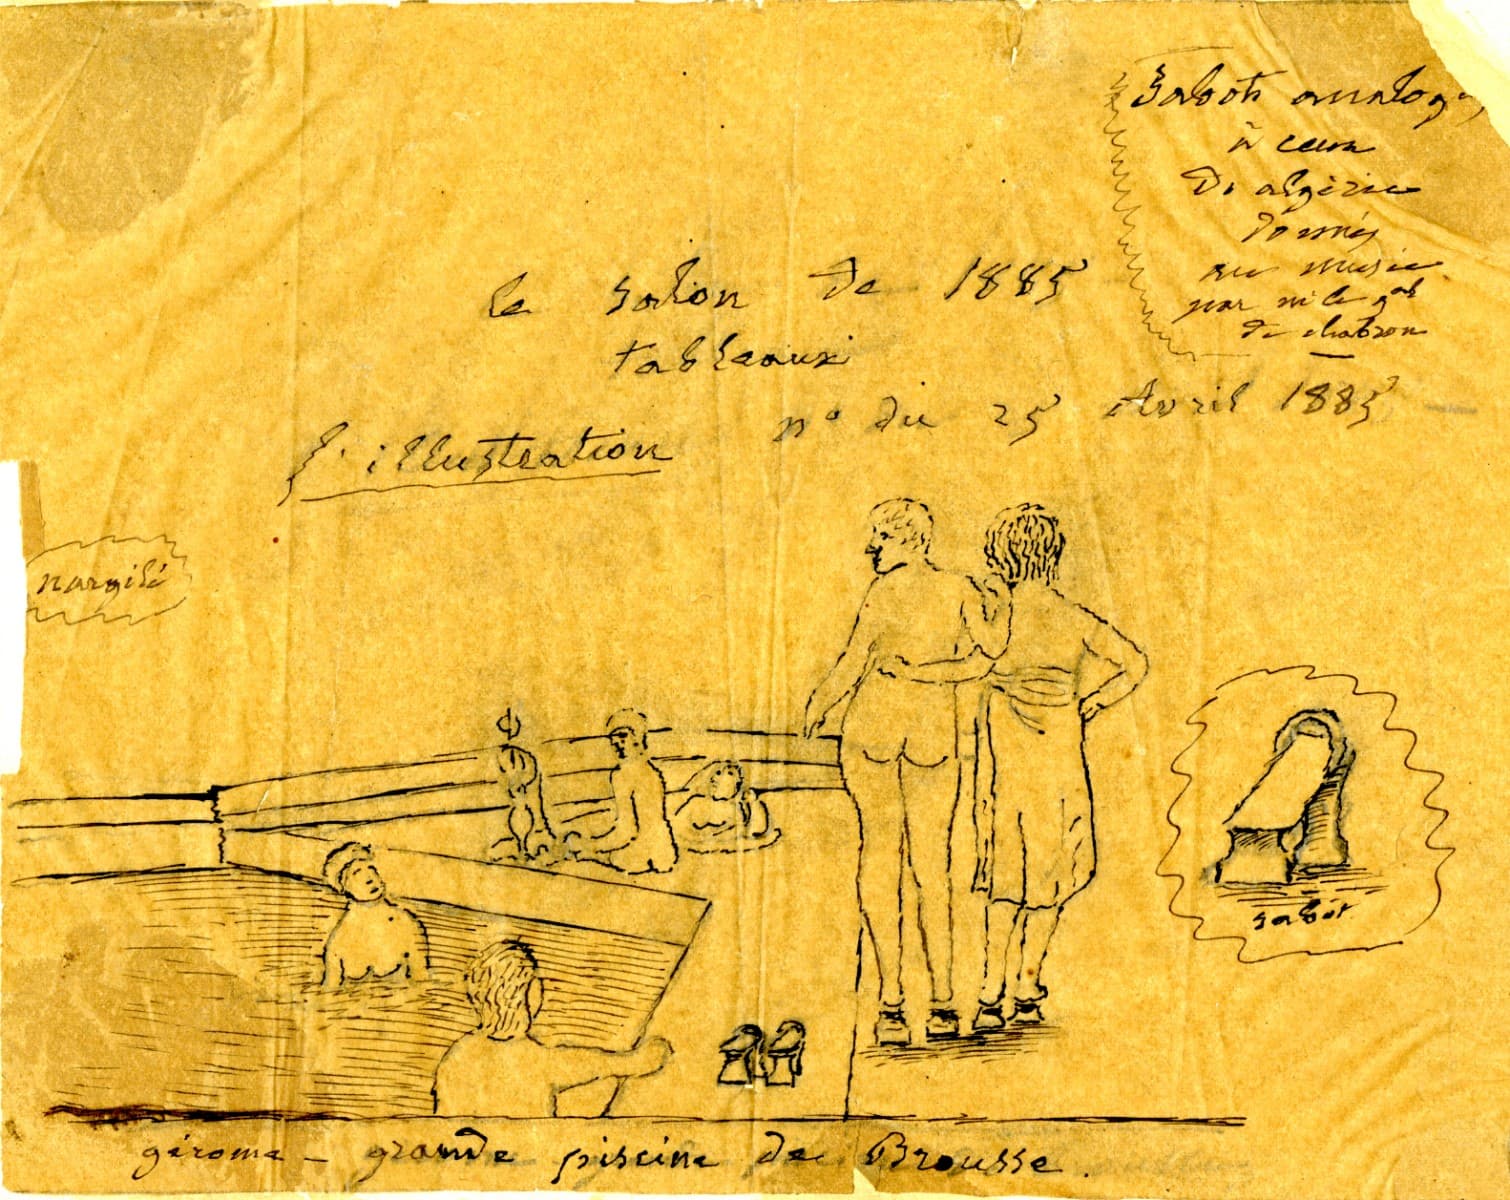 Sabots analogues
à ceux
De algérie
donnés
au musée
par m le gal
de chabron
le salon de 1885
tableaux
l'illustration n° du 25 Avril 1885
nargilé
sabot
gérome - grande piscine de Brousse.